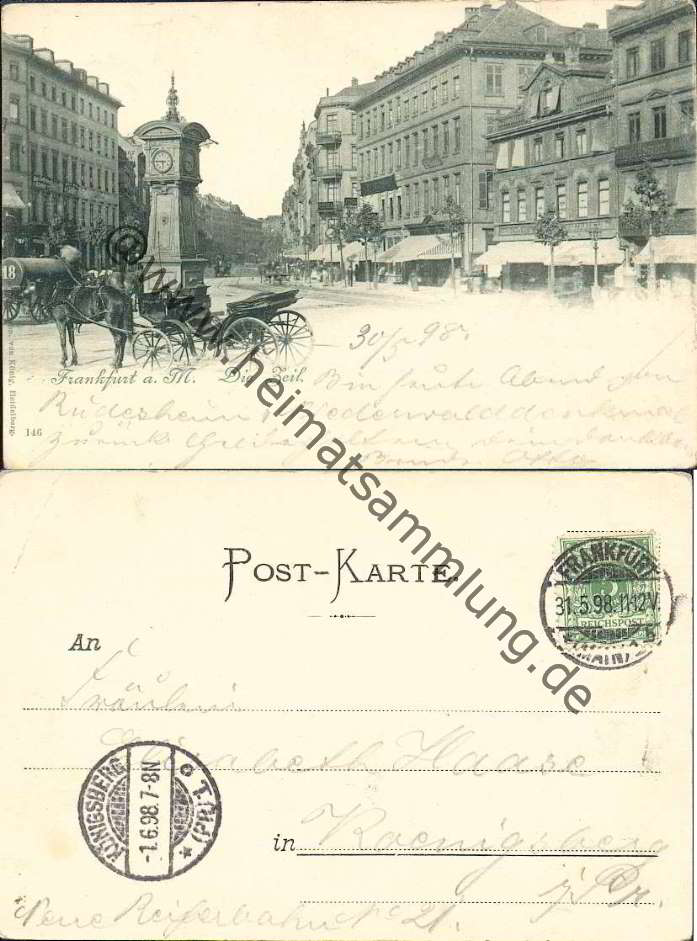 18
Frankfurt a. M. Die Zeil.
30/5 98.
Bin heute Abend von
Rüdesheim, Niederwalddenkmal
zurück
Otto
146
www.heimatsammlung.de
POST-KARTE.
FRANKFURT
31.5.98.11-12V.
(MAIN)
REICHSPOST
An
Fräulein
Elisabeth Haase
KÖNIGSBERG
-1.6.98.7-8N
(PR.)
in Koenigsberg
i/Pr.
Neue Reiferbahn No 21.